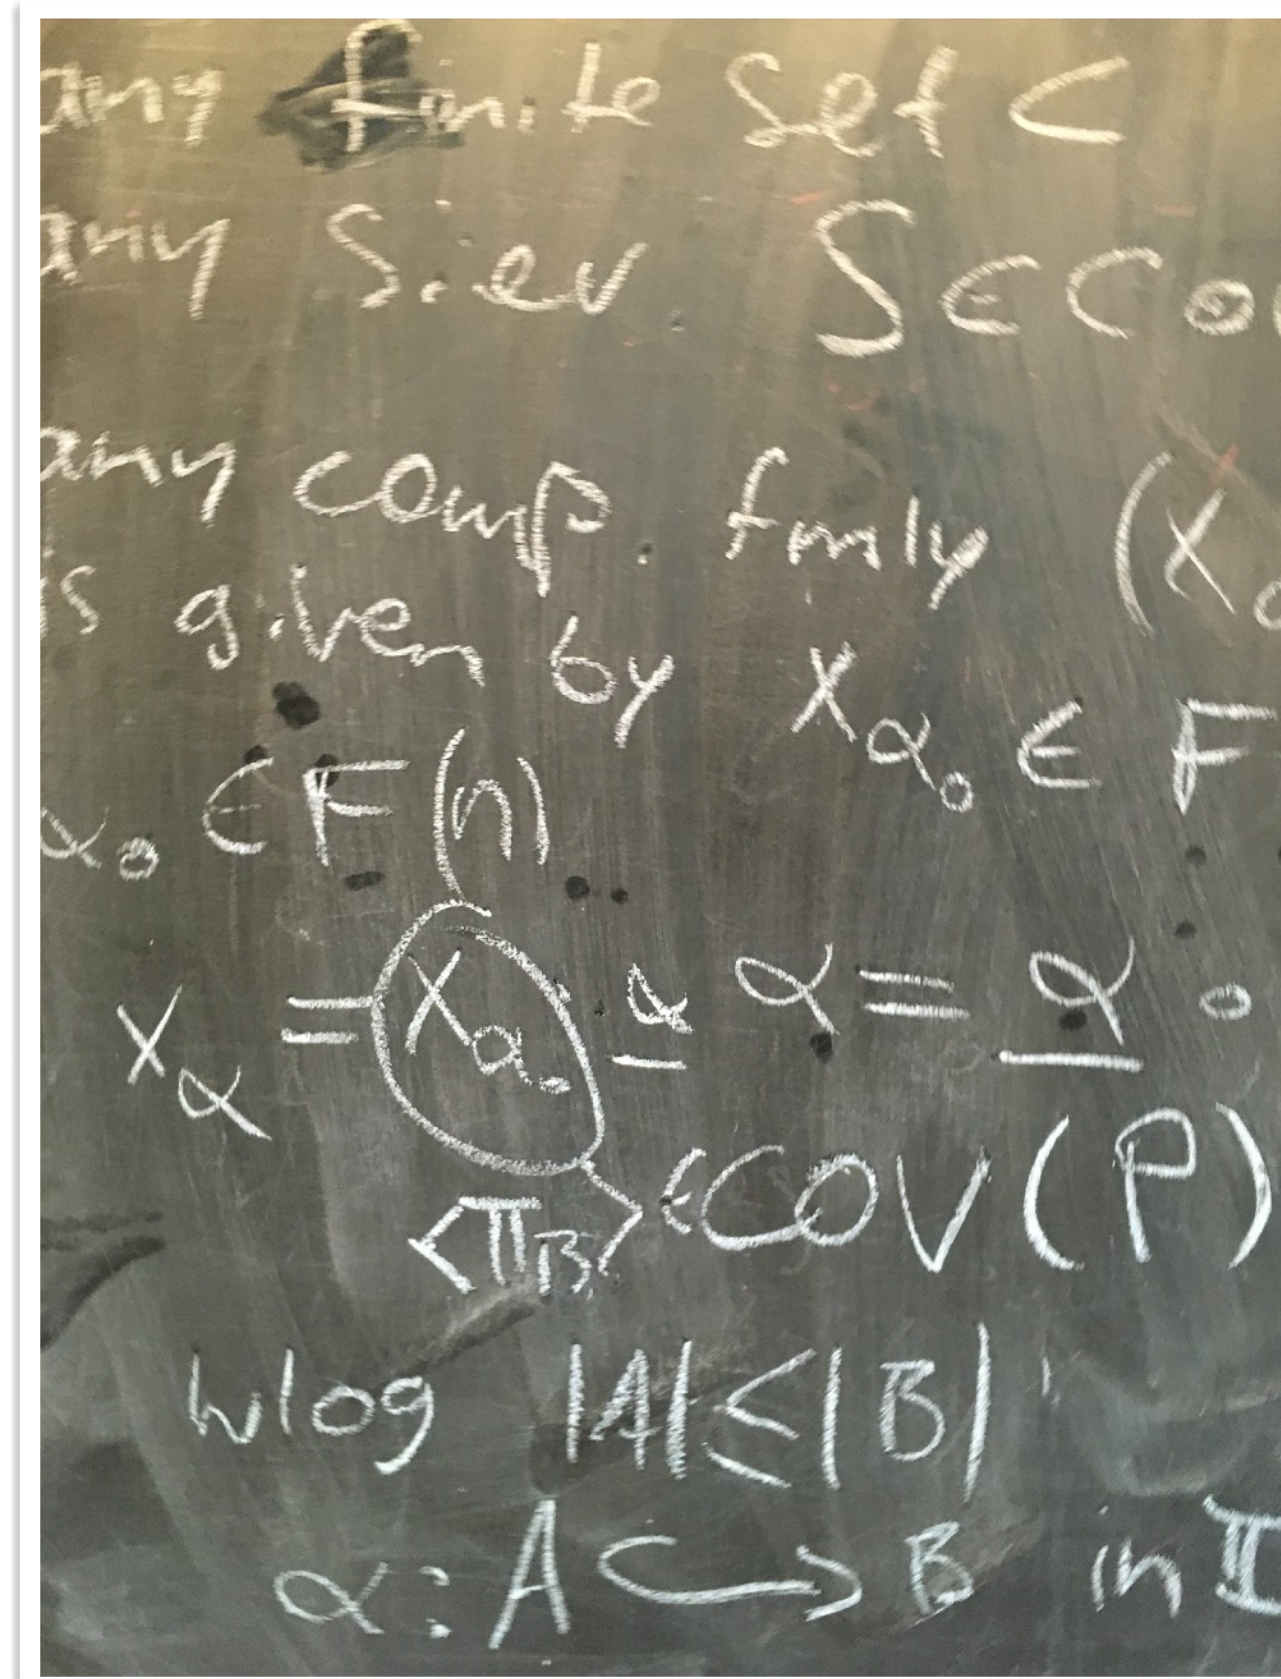 any finite set C
any Siev. S ∈ Co
any comp. fmly (X
is given by X_α₀ ∈ F
α₀ ∈ F(n)
X_α = X_α₀ · α̲ α = α̲ ∘
<π_B> ∈ COV(P)
wlog |A| ≤ |B|
α: A ↪ B in II